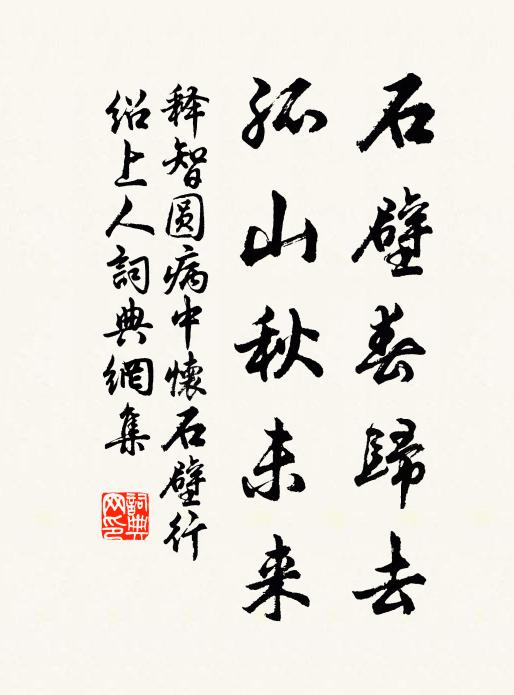 石壁春歸去
孤山秋未来
释智圆病中懷石壁行
绍上人詞典網集
詞典网印